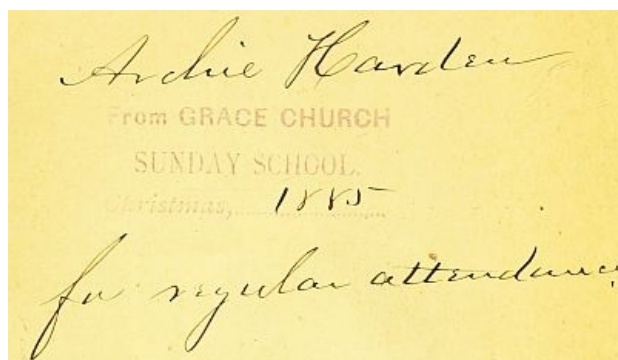 Archie Harden
From GRACE CHURCH
SUNDAY SCHOOL.
Christmas, 1885
for regular attendance